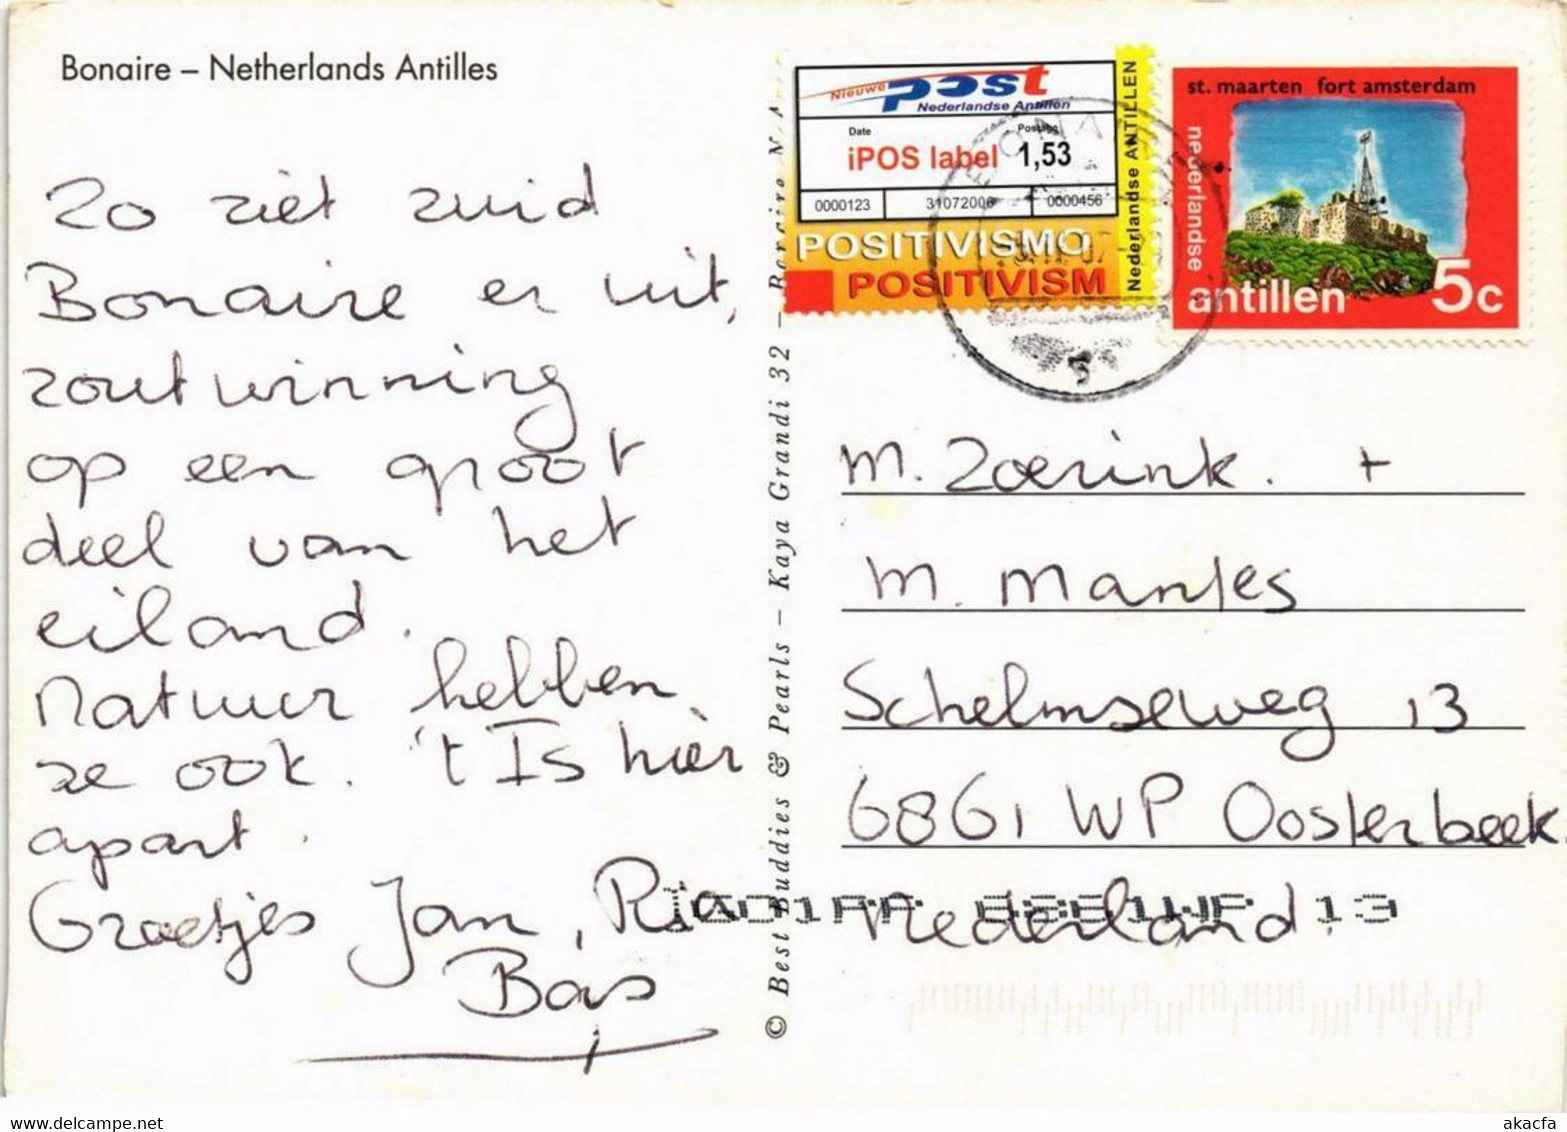 Bonaire – Netherlands Antilles
Zo ziet zuid
Bonaire er uit,
zoutwinning
op een groot
deel van het
eiland.
Natuur hebben
ze ook. 't Is hier
apart.
Groetjes Jan, Ria
Bas
© Best Buddies & Pearls – Kaya Grandi 32 – Bonaire N.A.
Nieuwe post
Nederlandse Antillen
Date Postage
iPOS label 1,53
0000123 31072006 0000456
POSITIVISMO
POSITIVISM
Nederlandse ANTILLEN
st. maarten fort amsterdam
nederlandse
antillen 5c
M. Zoerink. +
M. Manses
Schelmseweg 13
6861 WP Oosterbeek.
Nederland.
13
akacfa